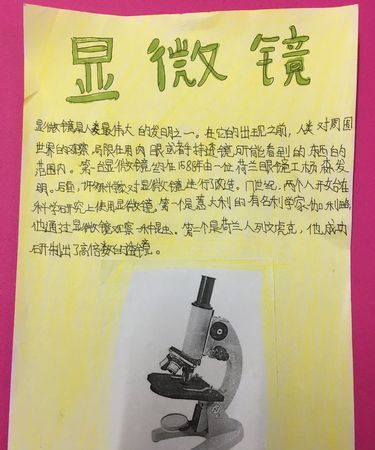 显微镜
显微镜是人类最伟大的发明之一。在它的出现之前，人类对周围
世界的观察，局限在用肉眼或者手持透镜所能看到的东西的
范围内。第一台显微镜，是在1588年由一位荷兰眼镜工杨森发
明。后，许多科学家对显微镜进行了改造。17世纪，两个人开始在
科学研究上使用显微镜。第一个是意大利的有名科学家伽利略
他通过显微镜观察一种昆虫。第二个是荷兰人列文虎克，他成功
研制出了高倍数的透镜。